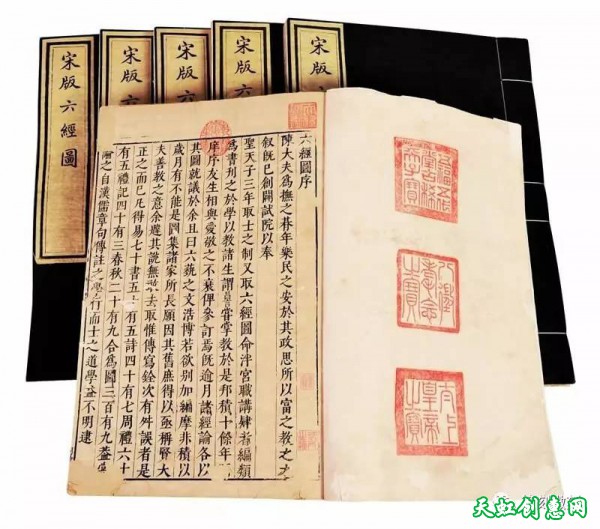 宋版六經圖
宋版六
宋版六
宋版六
宋版
六經圖序
陳大夫爲撫之朞年樂民之安於其政思所以富之教之大
叙旣已創闢試院以奉
聖天子三年取士之制又取六經圖命泮宮職講肄者編類
爲書刊之於學以教諸生謂甞掌教於是邦積十餘年
庠序友生相與愛敬之不衰俾參訂焉旣逾月諸經論各以
其圖就議於余且曰六藝之文浩博若欲别加編摩非積以
歲月有不能是圖集諸家所長願因其舊庶得以亟稱賢大
夫善教之意余遲其說無敢去取惟傳寫銓次有舛誤者是
正之而已凡得易七十書五十有五詩四十有七周禮六十
有五禮記四十有三春秋二十有九合爲圖三百有九盖
論之自漢儒章句傳註之學行而士之道學益不明逮
八徵耄念之寶
太上皇帝之寶
天虹创意网